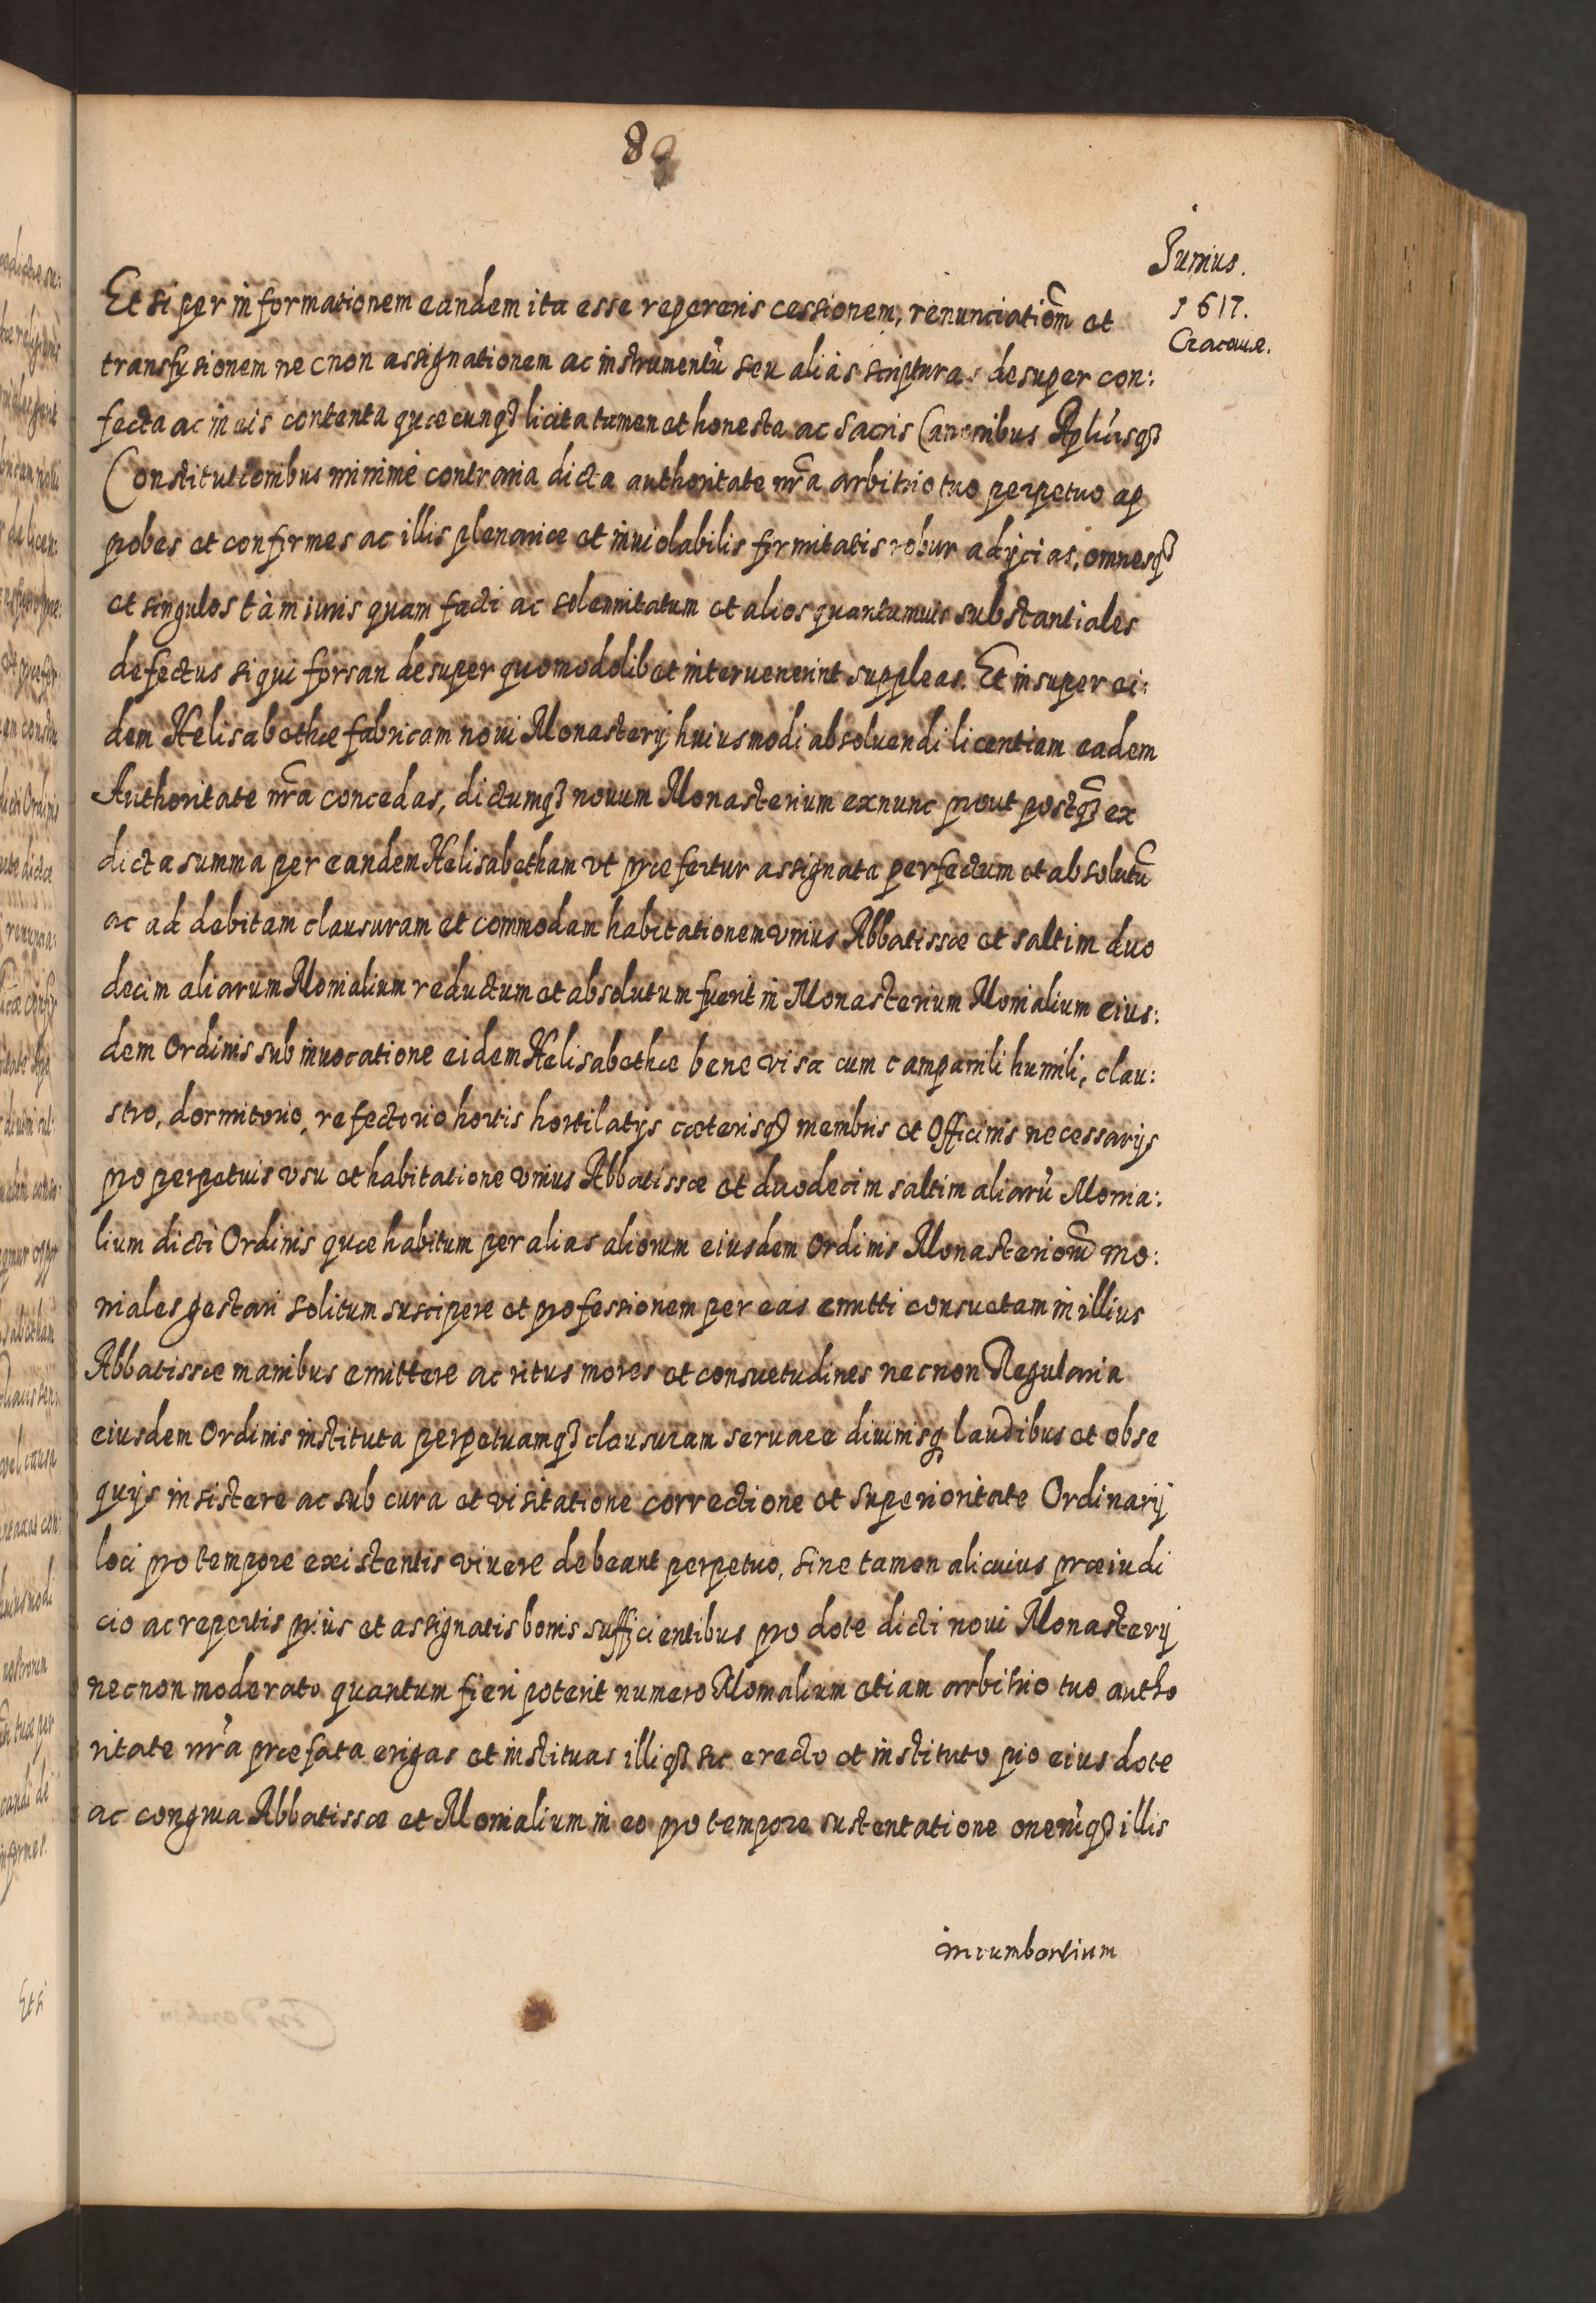 89
Junius.
1617.
Cracouiæ.
Et si per informationem eandem ita esse repereris cessionem, renunciatiõm et
transfusionem necnon assignationem ac instrumentũ seu alias scripturas desuper con:
fecta ac in eis contenta quæcunq3 licita tamen et honesta ac Sacris Canonibus Aplicisq3
Constitutionibus minimè contraria dicta authoritate nr̃a arbitrio tuo perpetuo ap
probes et confirmes ac illis plenariæ et inuiolabilis firmitatis robur adijcias, omnesq3
et singulos tàm iuris quam facti ac solemnitatum et alios quantumuis substantiales
defectus si qui forsan desuper quomodolibet interuenerint suppleas. Et insuper ei:
dem Helisabethæ fabricam noui Monasterij huiusmodi absoluendi licentiam eadem
Authoritate nr̃a concedas, dictumq3 nouum Monasterium exnunc prout postq̃3 ex
dicta summa per eandem Helisabetham vt præfertur assignata perfectum et absolutũ
ac ad debitam clausuram et commodam habitationem vnius Abbatissæ et saltim duo
decim aliarum Monialium reductum et absolutum fuerit in Monasterium Monialium eius:
dem Ordinis sub inuocatione eidem Helisabethæ bene visa cum campanili humili, clau:
stro, dormitorio, refectorio hortis hortilatijs cæterisq3 membris et Officinis necessarijs
pro perpetuis vsu et habitatione vnius Abbatissæ et duodecim saltim aliarũ Monia:
lium dicti Ordinis quæ habitum per alias aliorum eiusdem Ordinis Monasteriorũ mo:
niales gestari solitum suscipere et professionem per eas emitti consuetam in illius
Abbatissæ manibus emittere ac ritus mores et consuetudines necnon Regularia
eiusdem Ordinis instituta perpetuamq3 clausuram seruare diuinisq laudibus et obse
quijs insistere ac sub cura et visitatione correctione et superioritate Ordinarij
loci pro tempore existentis viuere debeant perpetuo, sine tamen alicuius præiudi
cio ac repertis priùs et assignatis bonis sufficientibus pro dote dicti noui Monasterij
necnon moderato quantum fieri poterit numero Monialium etiam arbitrio tuo autho
ritate nr̃a præfata erigas et instituas illiq3 sic erecto et instituto pro eius dote
ac congrua Abbatissæ et Monialium in eo pro tempore sustentatione onerũq3 illis
incumbentium